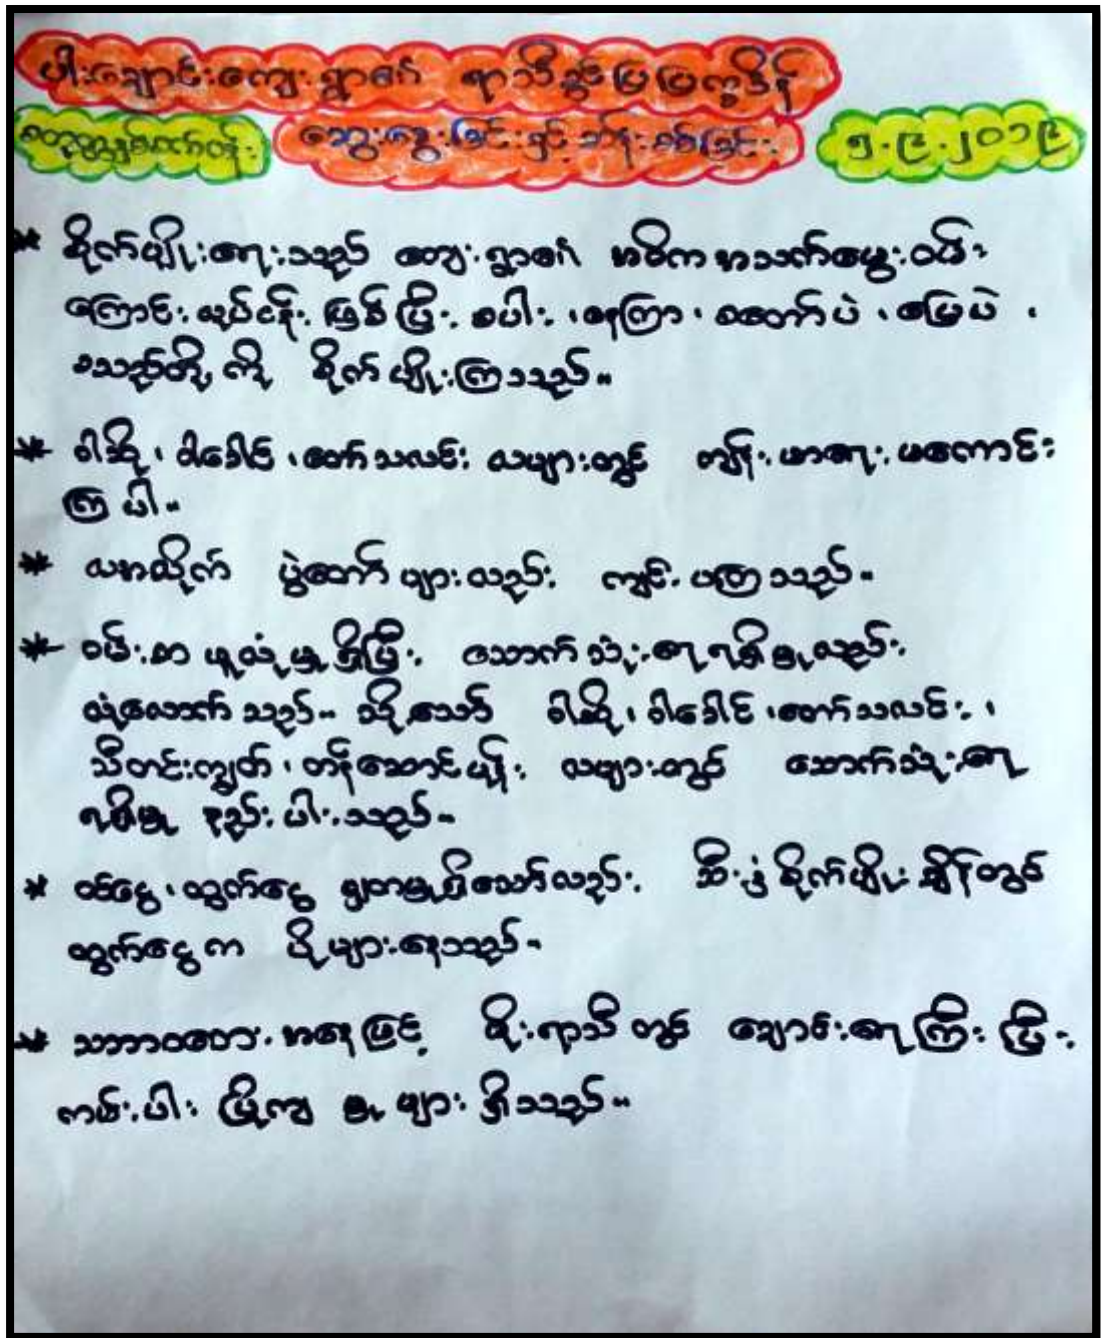 ပါးချောင်းကျေးရွာ၏ ရာသီခွင်ပြပြက္ခဒိန်
စတုတ္ထစာတန်း ဆွေးနွေးခြင်းနှင့်သန်းစစ်ခြင်း ၅.၉.၂၀၁၉
* စိုက်ပျိုးရေးသည် ကျေးရွာ၏ အဓိကအသက်မွေးဝမ်း
ကြောင်းလုပ်ငန်းဖြစ်ပြီး စပါး၊ နေကြာ၊ စတော်ပဲ၊ မြေပဲ၊
စသည်တို့ကို စိုက်ပျိုးကြသည်။
* ဝါဆို၊ ဝါခေါင်၊ တော်သလင်း လများတွင် ကျန်းမာရေးမကောင်း
ကြပါ။
* လအလိုက် ပွဲတော်များလည်း ကျင်းပကြသည်။
* ဝမ်းစာဖူလုံမှုရှိပြီး သောက်သုံးရေရရှိမှုလည်း
လုံလောက်သည်။ သို့သော် ဝါဆို၊ ဝါခေါင်၊ တော်သလင်း၊
သီတင်းကျွတ်၊ တန်ဆောင်မုန်း လများတွင် သောက်သုံးရေ
ရရှိမှု နည်းပါးသည်။
* ဝင်ငွေ၊ ထွက်ငွေ မျှတမှုရှိသော်လည်း သီးနှံစိုက်ပျိုးချိန်တွင်
ထွက်ငွေက ပိုများနေသည်။
* သဘာဝဘေးအနေဖြင့် မိုးရာသီတွင် ချောင်းရေကြီးပြီး
ကမ်းပါးပြိုကျမှုများရှိသည်။